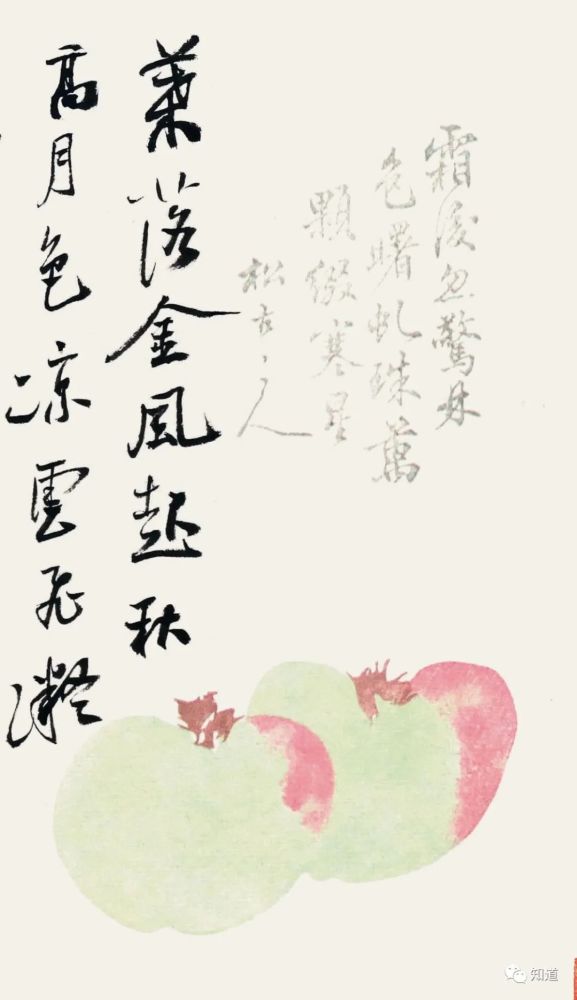 霜後忽驚林
色曙虬珠萬
顆綴寒星
松古人
葉落金風起秋
高月色凉雲飛凝
知道